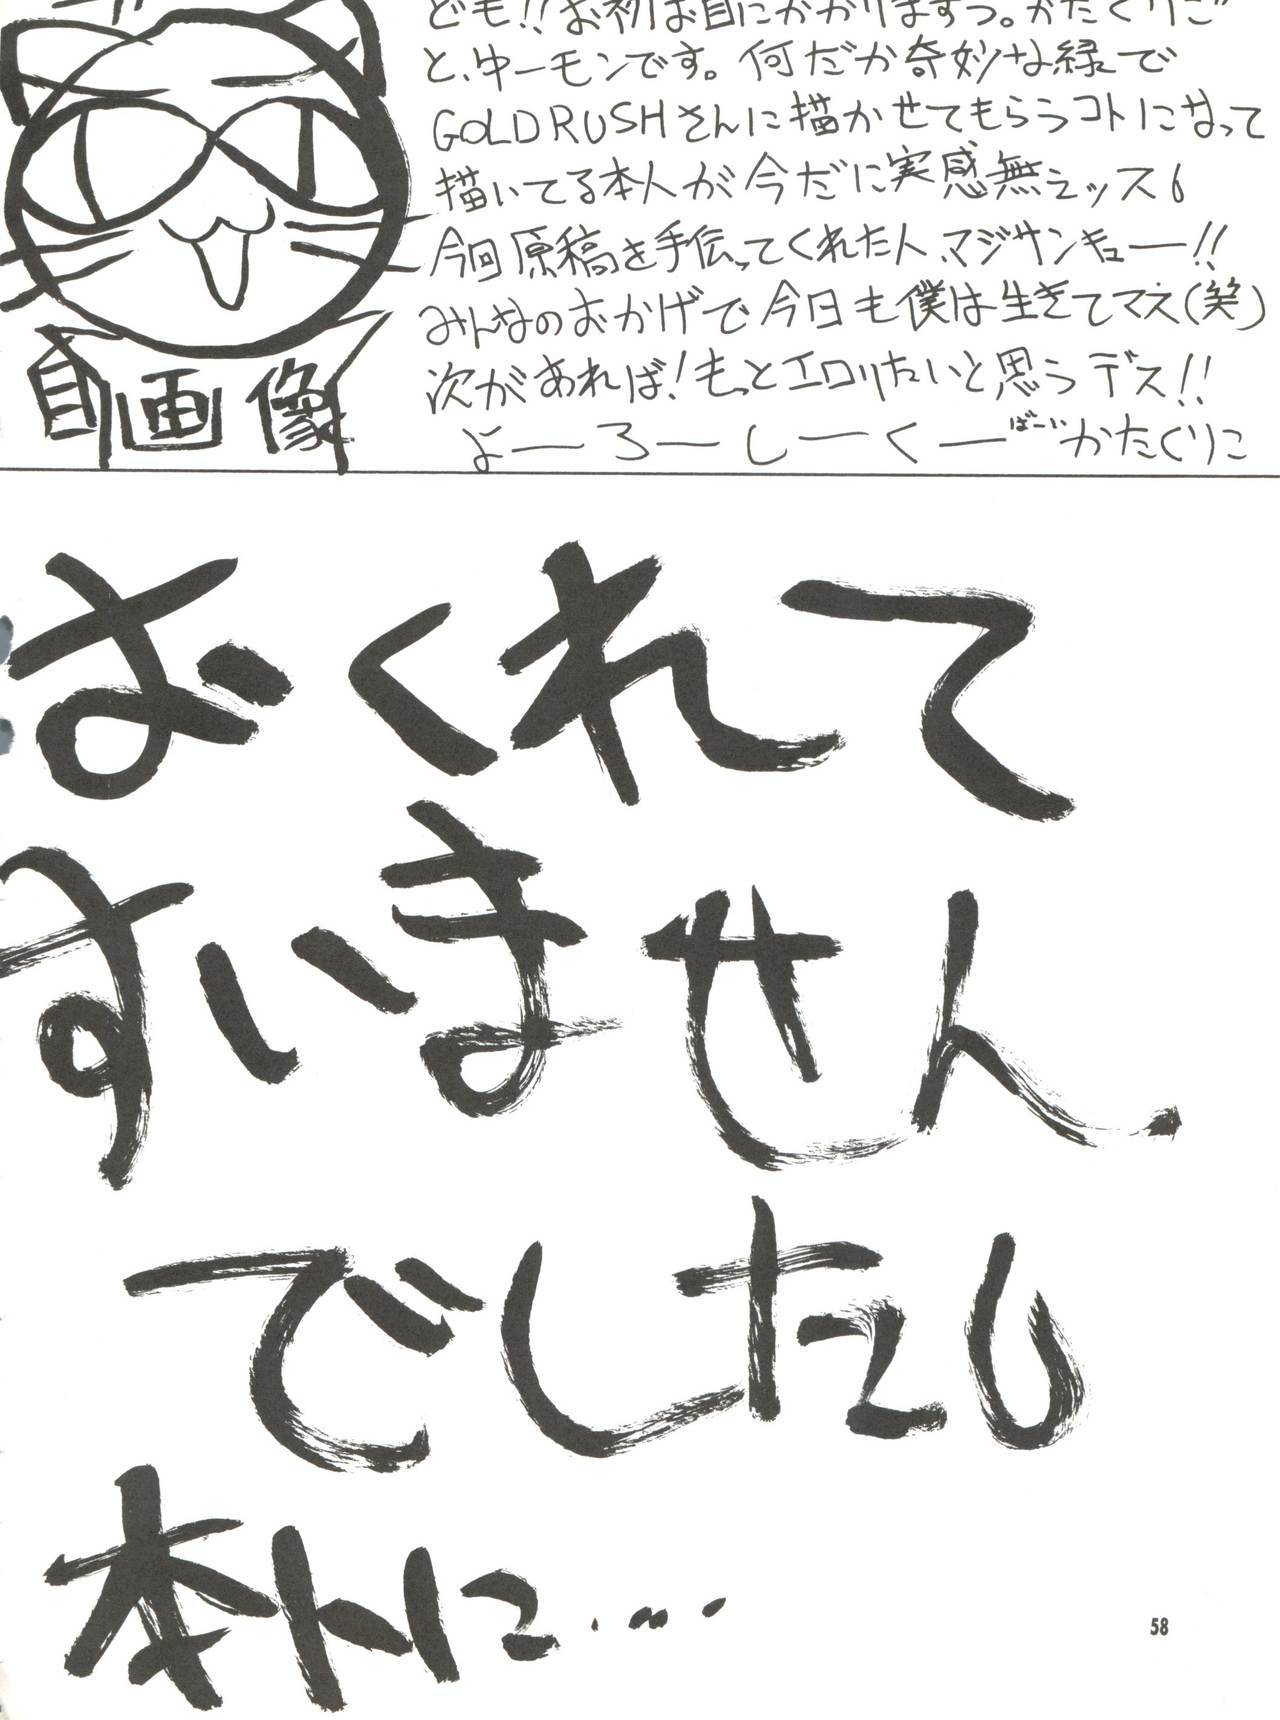 ども!!お初お目にかかりますっ。かたくりご
と、ゆーモンです。何だか奇妙な縁で
GOLD RUSHさんに描かせてもらうコトになって
描いてる本人が今だに実感無えッス。
今回原稿を手伝ってくれた人、マジサンキュー!!
みんなのおかげで今日も僕は生きてマス(笑)
次があれば!もっとエロりたいと思うデス!!
よーろーしーくー ばーい かたくりこ
自画像
おくれて
すいません
でした。
本トに....
58